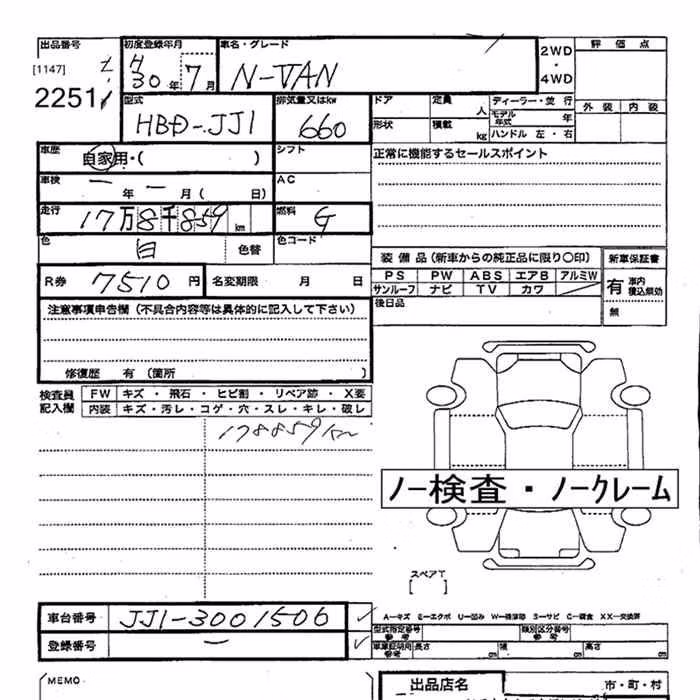 出品番号 初度登録年月 車名・グレード 2WD・4WD 評価点
[1147] H30年 7月 N-VAN
2251 外装 内装
型式 排気量又はkw ドア 定員 人 ディーラー・並行
HBD-JJ1 660 形状 積載 kg モデル年式 年
ハンドル 左・右
車歴 自家用・( ) シフト 正常に機能するセールスポイント
車検 ー年 ー月( 日) AC
走行 17万8千859km 燃料 G
色 白 色替 色コード
装備品(新車からの純正品に限り〇印) 新車保証書
R券 7510円 名変期限 月 日 PS PW ABS エアB アルミW 有 車内積込無効
サンルーフ ナビ TV カワ
注意事項申告欄(不具合内容等は具体的に記入して下さい) 後日品 無
修復歴 有(箇所 )
検査員記入欄 FW キズ・飛石・ヒビ割・リペア跡・X要
内装 キズ・汚レ・コゲ・穴・スレ・キレ・破レ
178859km
ノー検査・ノークレーム
スペアT
[ ]
車台番号 JJ1-3001506 A-キズ E-エクボ U-凹み W-補修跡 S-サビ C-腐食 XX-交換済
登録番号 ー 型式指定番号 参考 類別区分番号 参考
車庫証明用 参考 長さ 幅 高さ
MEMO 出品店名 市・町・村